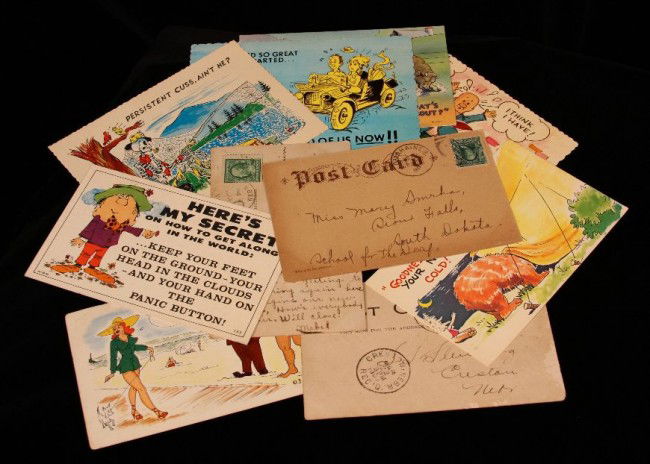 PERSISTENT CUSS, AIN'T HE?
D SO GREAT
ARTED...
OF US NOW!!
AT'S
OUT?"
I THINK
I HAVE!
Post Card
Miss Mary Smrha,
Sioux Falls,
South Dakota.
School for the Deaf.
HERE'S
MY SECRET
ON HOW TO GET ALONG
IN THE WORLD!
...KEEP YOUR FEET
ON THE GROUND-YOUR
HEAD IN THE CLOUDS
-AND YOUR HAND ON
THE
PANIC BUTTON!
"GOODNE
YOUR N
COLD!
here
our
everybody
Will close!
Mabel
T C
FOR THE ADDRESS
CRESTON
NEBR
Creston
Nebr